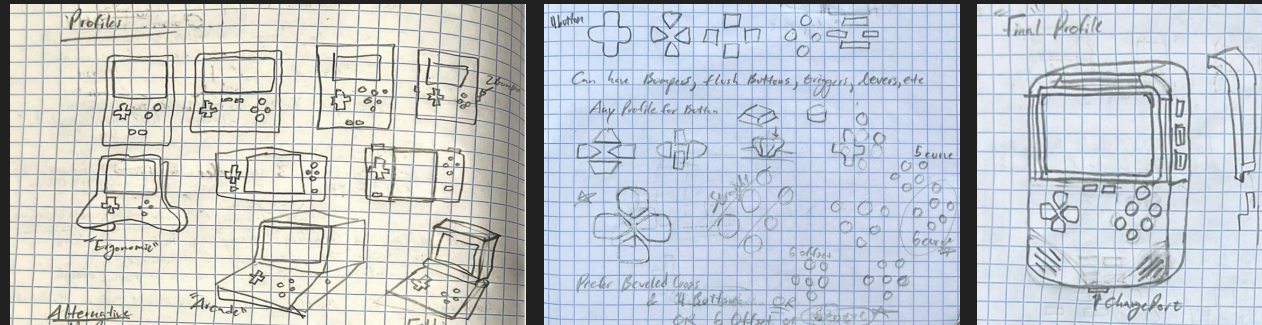 Profiles
"Ergonomic"
"Arcade"
Alternative
4 button
Can have Bumpers, flush Buttons, triggers, levers, etc
Any Profile for Button
5 curve
6 curve
6 offset
Prefer Beveled
& 4 Buttons OR
OR 6 Offset or 6 curve
"Final Profile"
Charge Port